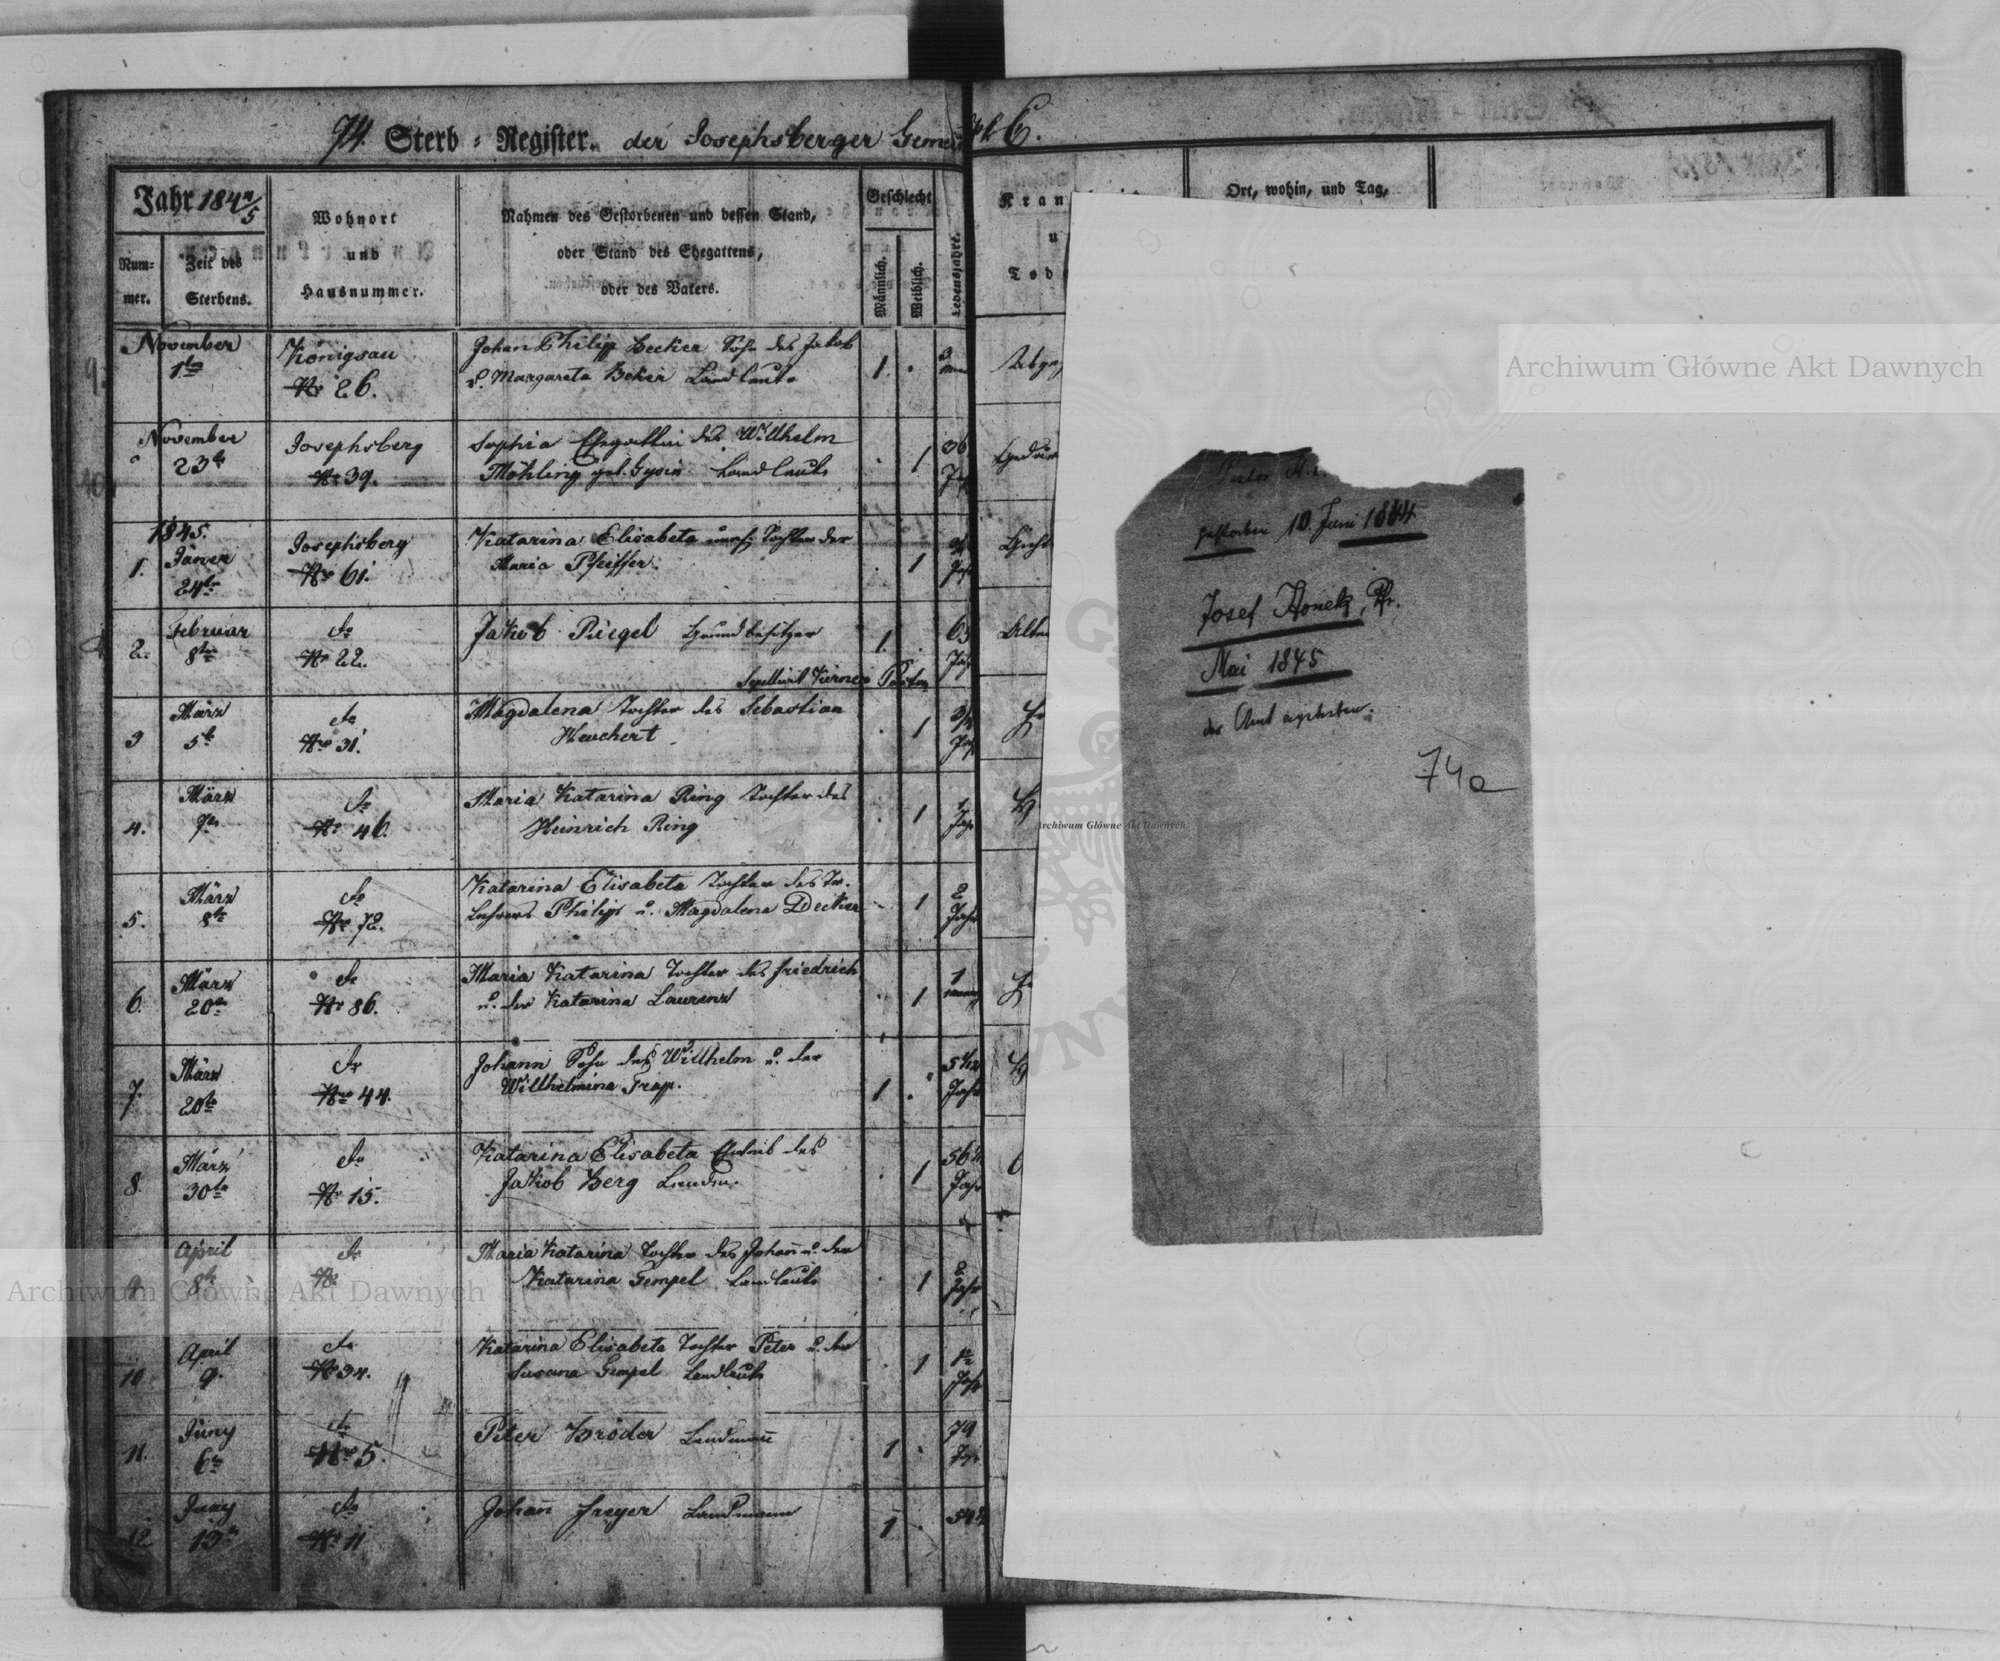 74. Sterb = Register. der Josephsberger Gemei
Jahr 1844/5
Num=
mer.
Zeit des
Sterbens.
Wohnort
und
Hausnummer.
Nahmen des Gestorbenen und dessen Stand,
oder Stand des Ehegattens,
oder des Vaters.
Geschlecht
Männlich.
Weiblich.
Lebensjahre.
Kran
u
Tod
Ort, wohin, und Tag,
9.
November
1ten
Königsau
Nr 26.
Johan Philipp Becker Sohn des Jakob
u. Margareta Beker Landleute
1.
3
November
23te
Josephsberg
Nr 39.
Sophia Ehegattin des Willhelm
Möhling geb. Gysin Landleute
1
36
Jahr
1.
1845.
Jäner
24te
Josephsberg
Nr 61.
Katarina Elisabeta Tochter der
Maria Pfeiffer.
1
2.
Februar
8ten
do
Nr 22.
Jakob Riegel Grundbesitzer
1.
63
Jahr
Sepellivit Pastor
3
März
5te
do
Nr 31.
Magdalena Tochter des Sebastian
Heuchert.
1
4.
März
7ten
do
Nr 46.
Maria Katarina Ring Tochter des
Heinrich Ring
1
1
Jahr
5.
März
8te
do
Nr 72.
Katarina Elisabeta Tochter des
Lehrers Philipp u. Magdalena Decker
1
2
Jahr
6.
März
20ten
do
Nr 86.
Maria Katarina Tochter des Friedrich
u. der Katarina Laurenz
1
1
7.
März
20te
do
Nr 44.
Johann Sohn des Willhelm u. der
Willhelmina Trapp.
1
Jahr
8.
März
30te
do
Nr 15.
Katarina Elisabeta Eheweib des
Jakob Berg
1
Jahr
9.
April
8te
do
Nr
Maria Katarina Tochter des Johann u. der
Katarina Gempel Landleute
1
2
Jahr
10
April
9.
do
Nr 34.
Katarina Elisabeta Tochter Peter u. der
Susana Gempel Landleute
1
Jahr
11.
Juny
6te
do
Nr 5.
Peter Bröder Landmann
1
79
12
Juny
13te
do
Nr 11
Johann Freyer Landmann
1
gestorben 10. Juni 1844.
Josef Honek, Pfr.
Mai 1845
74a
Archiwum Główne Akt Dawnych
Archiwum Główne Akt Dawnych
Archiwum Główne Akt Dawnych